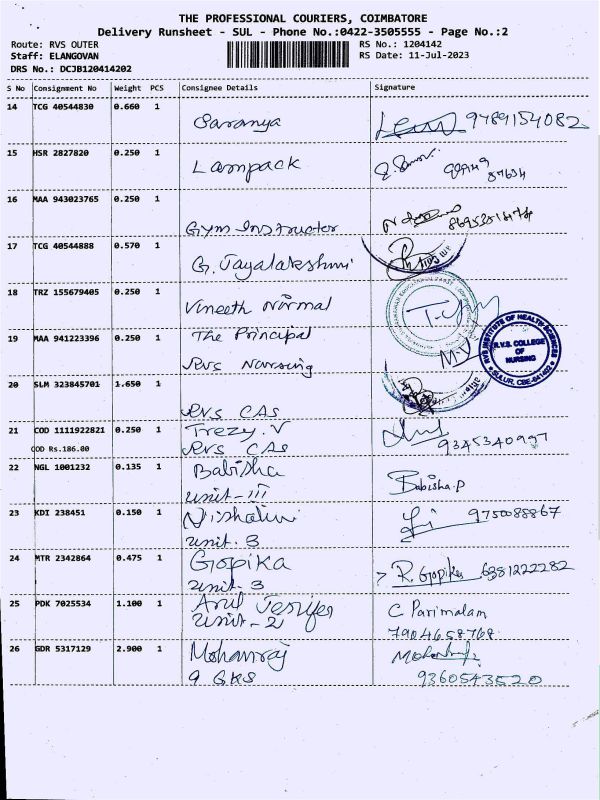 THE PROFESSIONAL COURIERS, COIMBATORE
Delivery Runsheet - SUL - Phone No.:0422-3505555 - Page No.:2
Route: RVS OUTER
RS No.: 1204142
Staff: ELANGOVAN
RS Date: 11-Jul-2023
DRS No.: DCJB120414202
S No Consignment No Weight PCS Consignee Details Signature
14 TCG 40544830 0.660 1
Saranya 9789154082
15 HSR 2827820 0.250 1
Lampack
16 MAA 943023765 0.250 1
Gym Instructor
17 TCG 40544888 0.570 1
G. Jayalakshmi
18 TRZ 155679405 0.250 1
Vineeth Nirmal
19 MAA 941223396 0.250 1 The Principal
RVS Nursing
RVS INSTITUTE OF HEALTH SCIENCES
R.V.S. COLLEGE
OF
NURSING
SULUR, CBE-641402
20 SLM 323845701 1.650 1
RVS CAS
21 COD 1111922821 0.250 1 Trezy.V
COD Rs.186.00 RVS CAS 9345340997
22 NGL 1001232 0.135 1 Babisha Babisha.P
unit-III
23 KDI 238451 0.150 1 Nishalini 9750088867
unit. 3
24 MTR 2342864 0.475 1 Gopika R. Gopika 6381222282
unit. 3
25 PDK 7025534 1.100 1 Arul C Parimalam
unit-2 7904658768
26 GDR 5317129 2.900 1 Mohanraj
9 GKS 9360543520